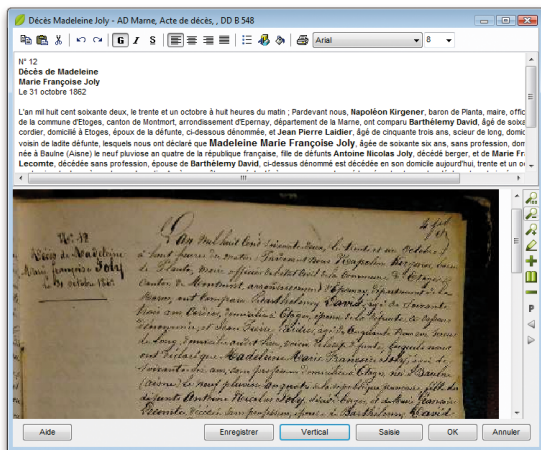 Décès Madeleine Joly - AD Marne, Acte de décès, , DD B 548
G I S Arial 8
N° 12
Décès de Madeleine
Marie Françoise Joly
Le 31 octobre 1862
L'an mil huit cent soixante deux, le trente et un octobre à huit heures du matin ; Pardevant nous, Napoléon Kirgener, baron de Planta, maire, offic
de la commune d'Etoges, canton de Montmort, arrondissement d'Epernay, département de la Marne, ont comparu Barthélemy David, âgé de soixa
cordier, domicilié à Etoges, époux de la défunte, ci-dessous dénommée, et Jean Pierre Laidier, âgé de cinquante trois ans, scieur de long, domic
voisin de ladite défunte, lesquels nous ont déclaré que Madeleine Marie Françoise Joly, âgée de soixante six ans, sans profession, dom
née à Baulne (Aisne) le neuf pluviose an quatre de la république française, fille de défunts Antoine Nicolas Joly, décédé berger, et de Marie Fr
Lecomte, décédée sans profession, épouse de Barthélemy David, ci-dessus dénommé est décédée en son domicile aujourd'hui, trente et un oc
N° 12
Décès de Madeleine
Marie françoise Joly
Le 31 octobre 1862
L'an mil huit cent soixante deux, le trente et un octobre
à huit heures du matin Pardevant nous Napoléon Kirgener, baron
de Planta, maire officier de l'état civil de la commune d'Etoges
canton de Montmort arrondissement d'Epernay, département de la
Marne, ont comparu Barthélemy David, âgé de soixante
ans cordier, domicilié à Etoges, époux de la défunte ci-dessous
dénommée, et Jean Pierre Laidier, âgé de cinquante trois ans scieur
de long, voisin de ladite défunte, lesquels nous
ont déclaré que Madeleine Marie Françoise Joly, âgée de
soixante six ans, sans profession domiciliée à Etoges née à Baulne
(aisne) le neuf pluviose an quatre de la république française, fille de
défunts Antoine Nicolas Joly, décédé berger, et de Marie françoise
Lecomte décédée sans profession, épouse de Barthélemy David
P
Aide Enregistrer Vertical Saisie OK Annuler